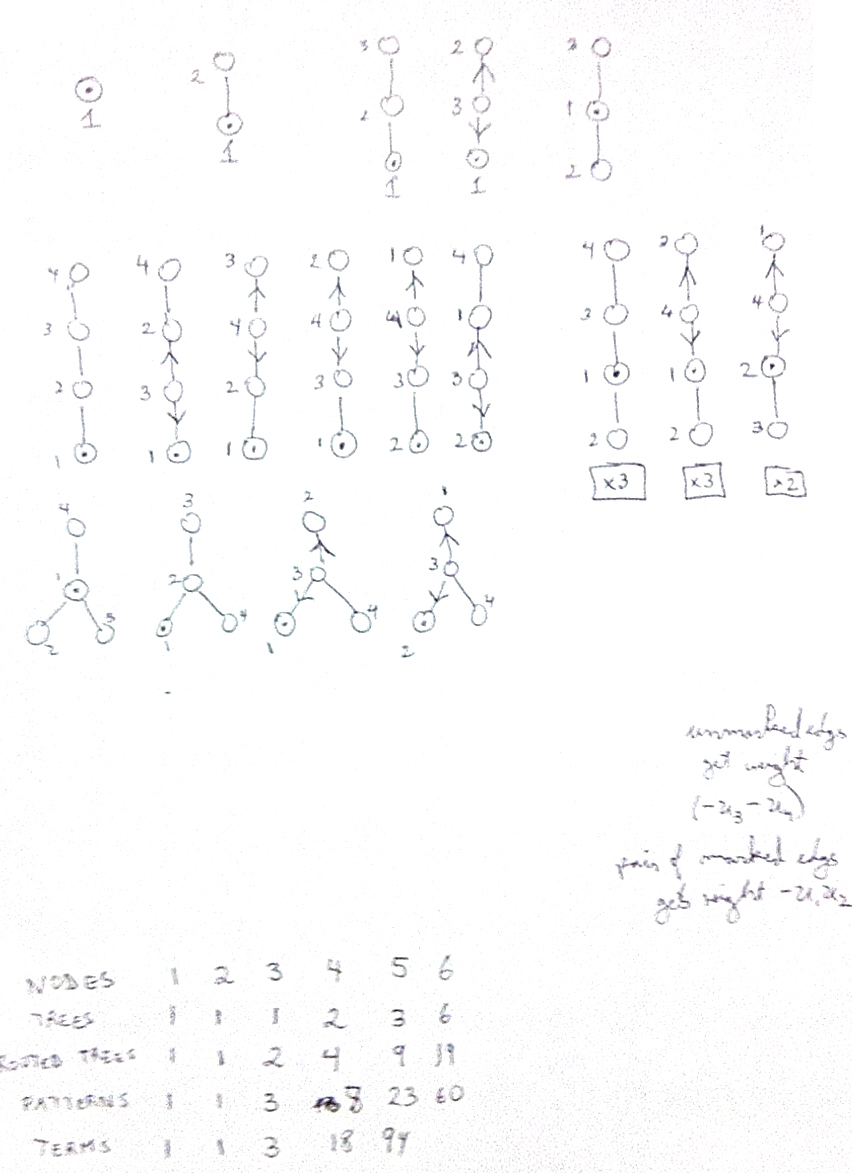 3 2 3
2
2 3 1
1 1 2
1 1
4 4 3 2 1 4 4 2 1
3 2 4 4 4 1 3 4 4
2 3 2 3 3 3 1 1 2
1 1 1 1 2 2 2 2 3
x3 x3 x2
4 3 2 1
1 2 3 3
2 3 1 4 1 4 2 4
unmarked edges
get weight
(-x₃-x₄)
pair of marked edges
gets weight -x₁x₂
NODES 1 2 3 4 5 6
TREES 1 1 1 2 3 6
ROOTED TREES 1 1 2 4 9 19
PATTERNS 1 1 3 8 23 60
TERMS 1 1 3 18 94